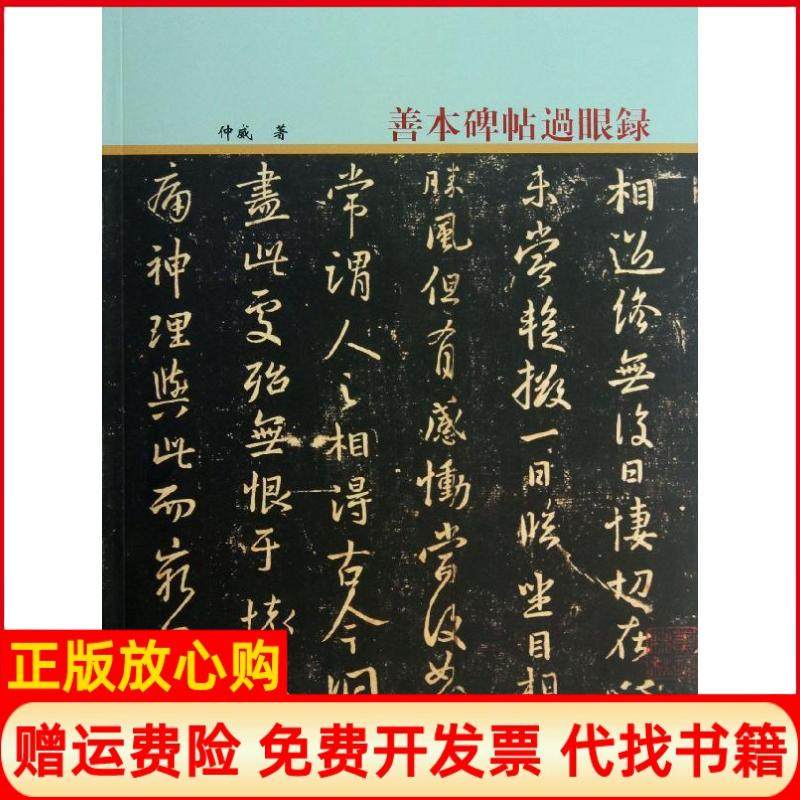 善本碑帖過眼録
仲威 著
相迟终無復日悽切在
未嘗暫撥一日臨坐目相
勝風但有感慟當復如
常謂人之相得古今洞
盡此處殆無恨于
痛神理與此而窮
正版放心购
赠运费险 免费开发票 代找书籍